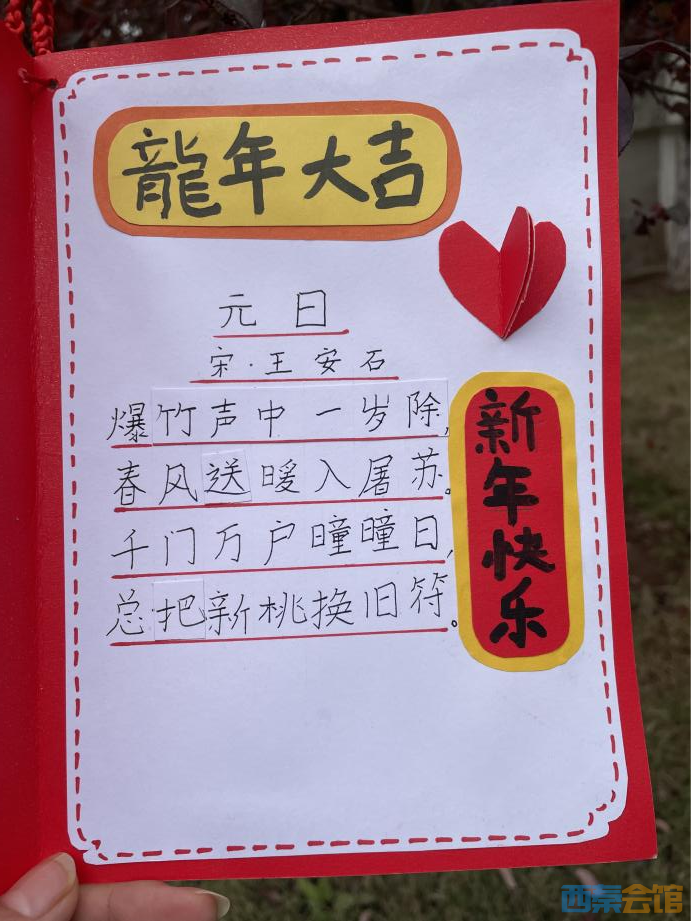 龍年大吉
元日
宋·王安石
爆竹声中一岁除,
春风送暖入屠苏。
千门万户曈曈日,
总把新桃换旧符。
新年快乐
西秦会馆